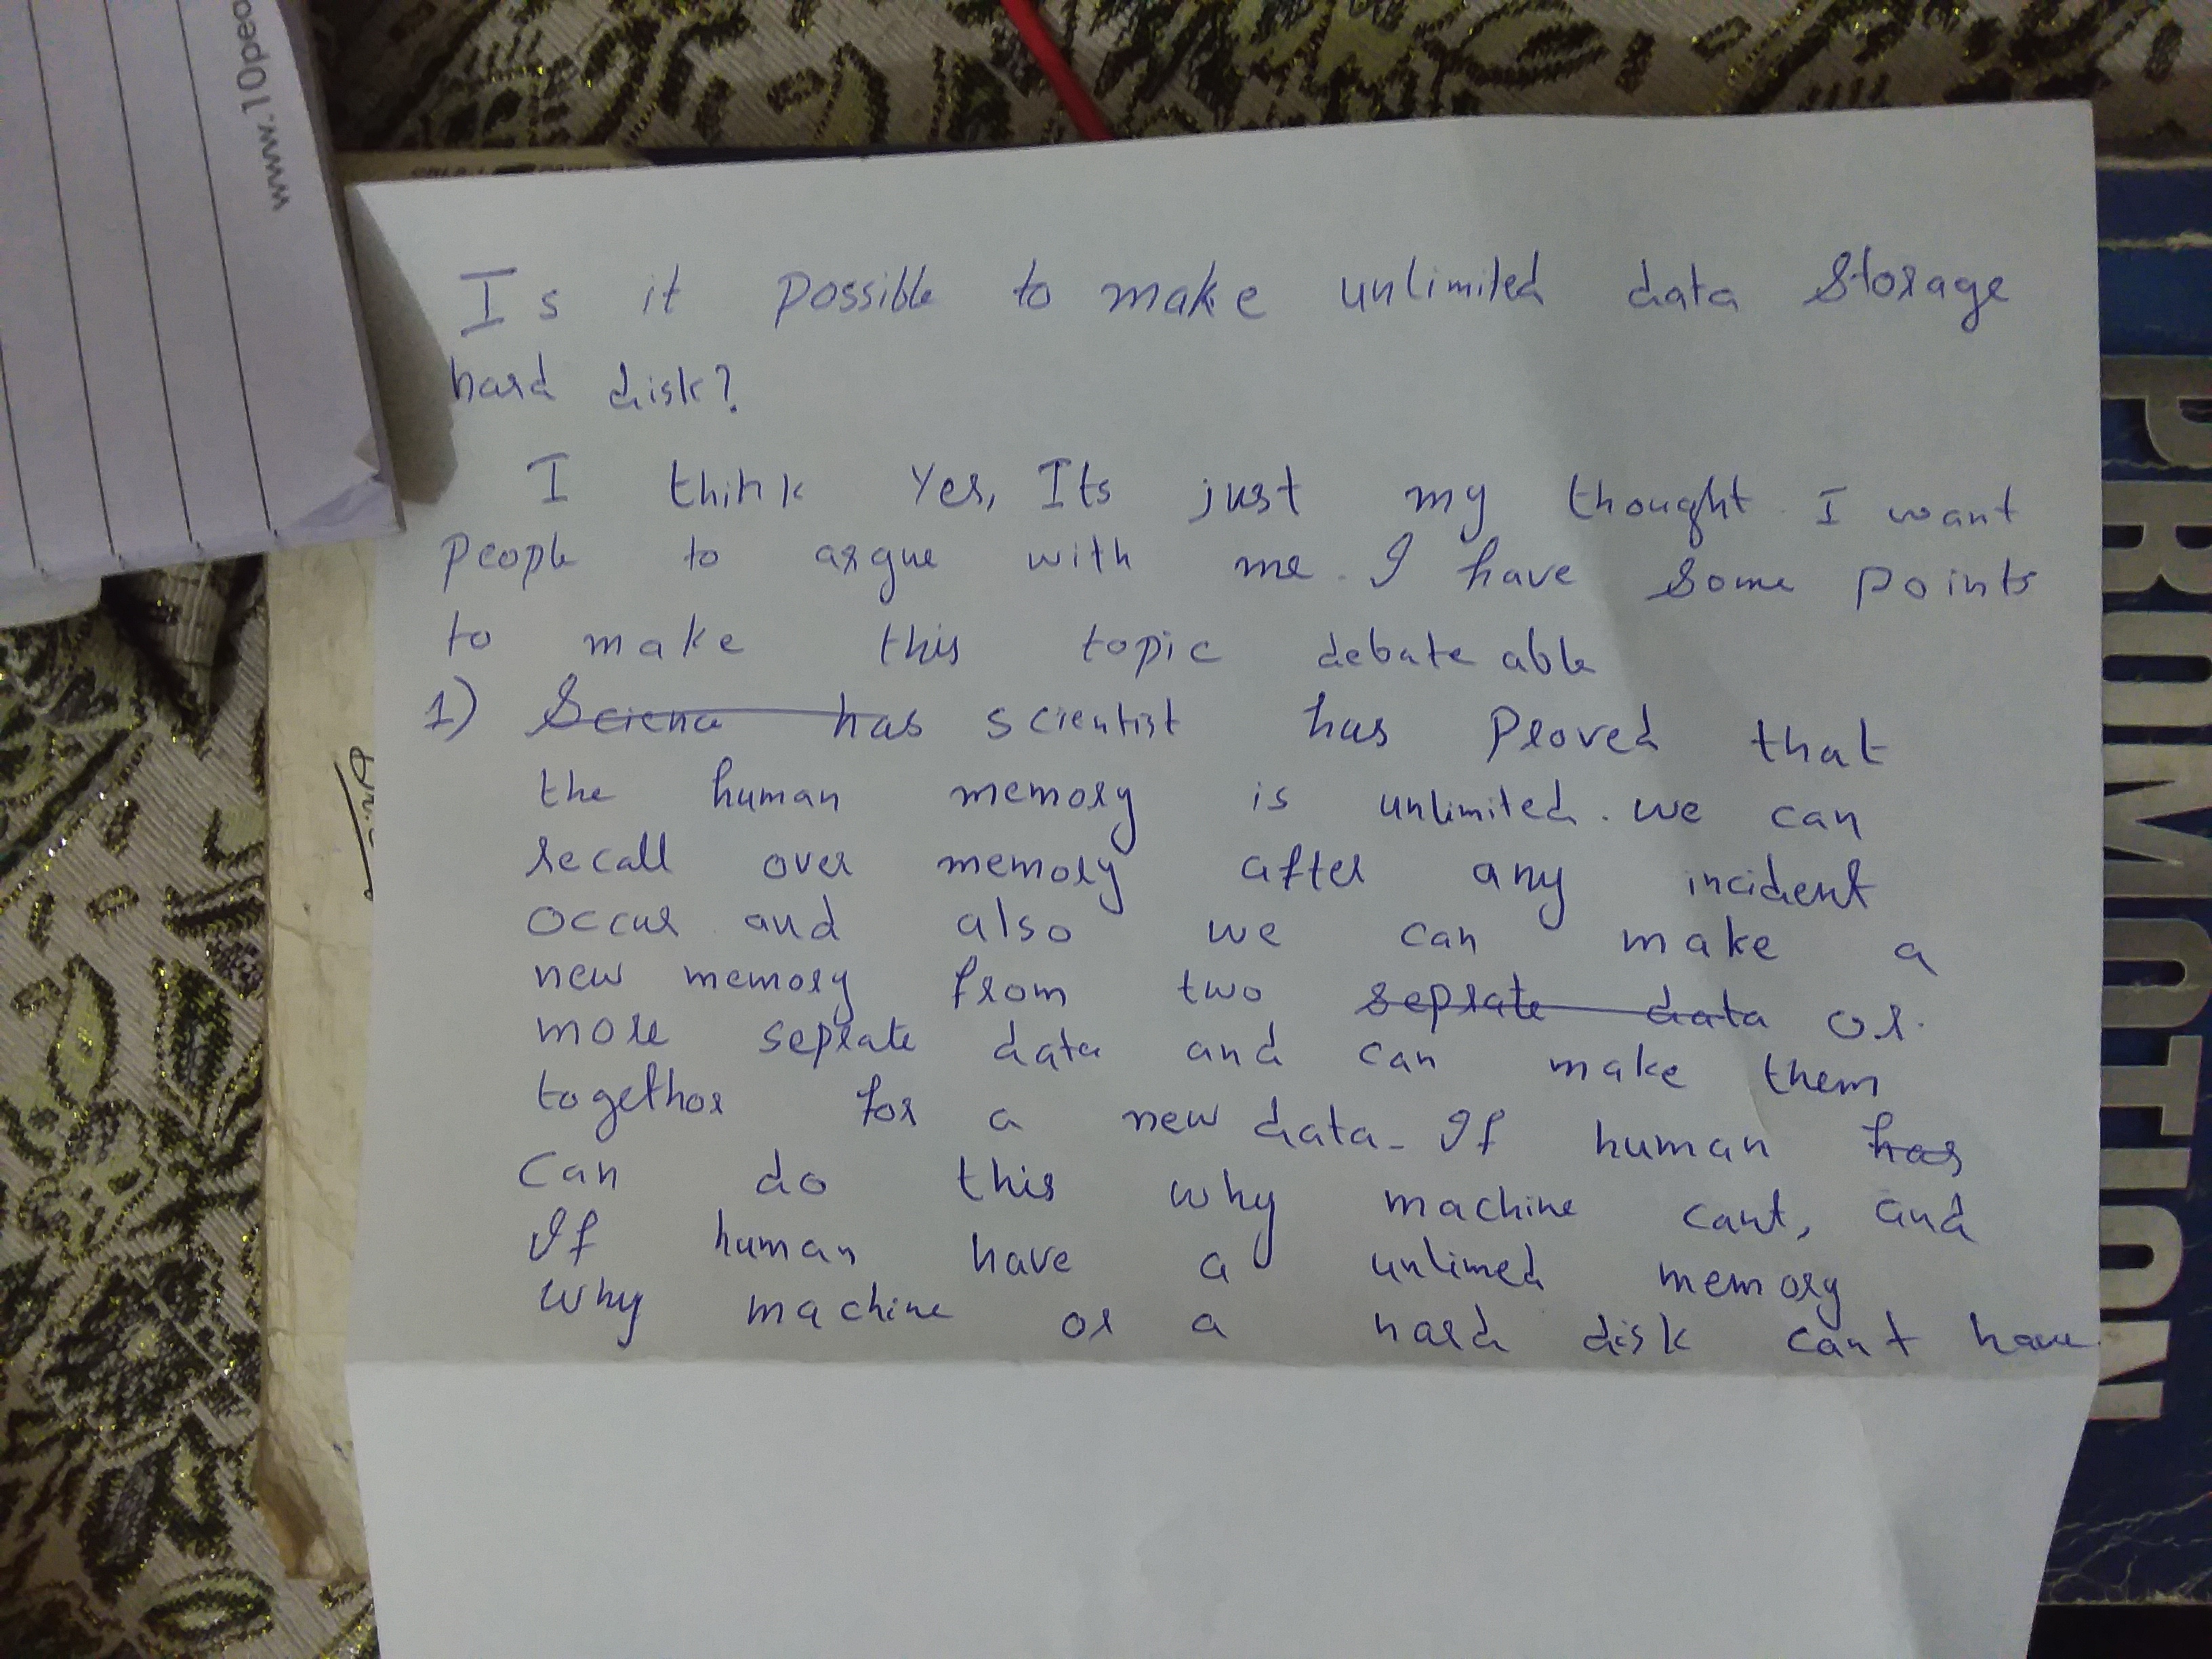 Is it possible to make unlimited data storage
hard disk?
I think Yes, Its just my thought. I want
people to argue with me. I have some points
to make this topic debate able
1) Science has scientist has proved that
the human memory is unlimited. we can
recall over memory after any incident
occur and also we can make a
new memory from two seprate data or.
more seprate data and can make them
together for a new data. If human has
can do this why machine cant, and
If human have a unlimed memory
why machine or a hard disk can't have
www.10peo
PROMOTION